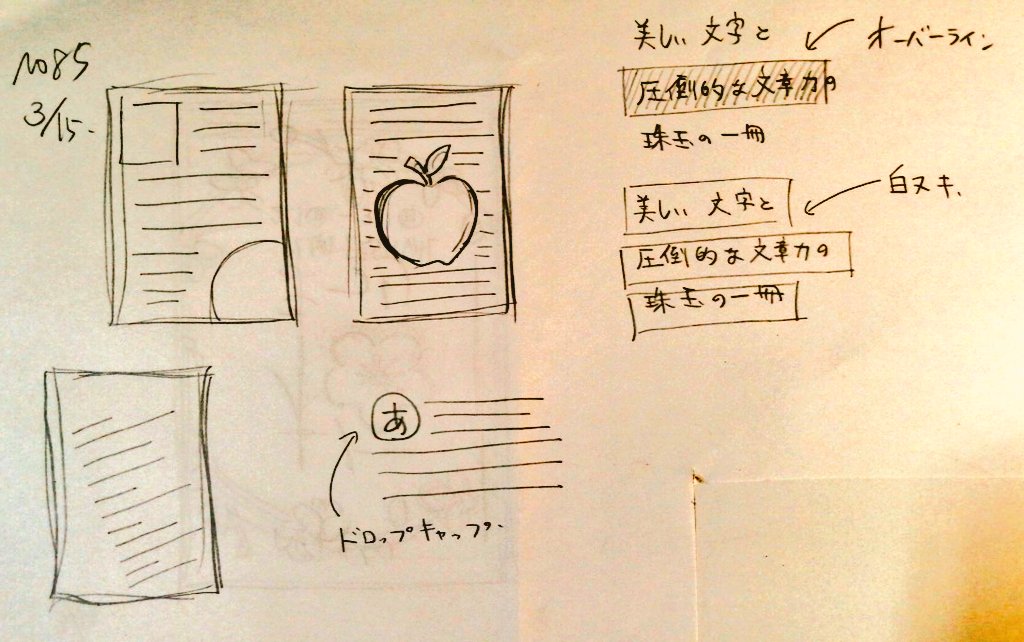 No85
3/15.
美しい文字と
オーバーライン
圧倒的な文章力の
珠玉の一冊
白ヌキ.
美しい文字と
圧倒的な文章力の
珠玉の一冊
あ
ドロップキャップ.